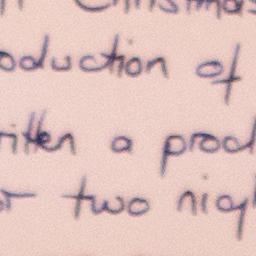 Christmas
oduction of
ritten a prod
or two nigh